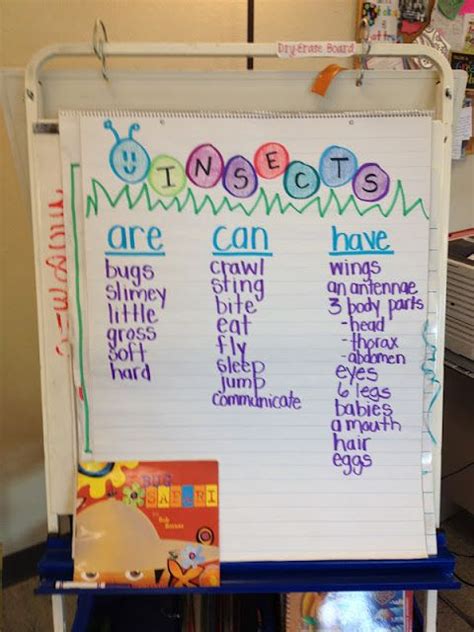 Dry-Erase Board
INSECTS
are
bugs
slimey
little
gross
soft
hard
can
crawl
sting
bite
eat
fly
sleep
jump
communicate
have
wings
an antennae
3 body parts
-head
-thorax
-abdomen
eyes
6 legs
babies
a mouth
hair
eggs
BUG
SAFARI
Bob